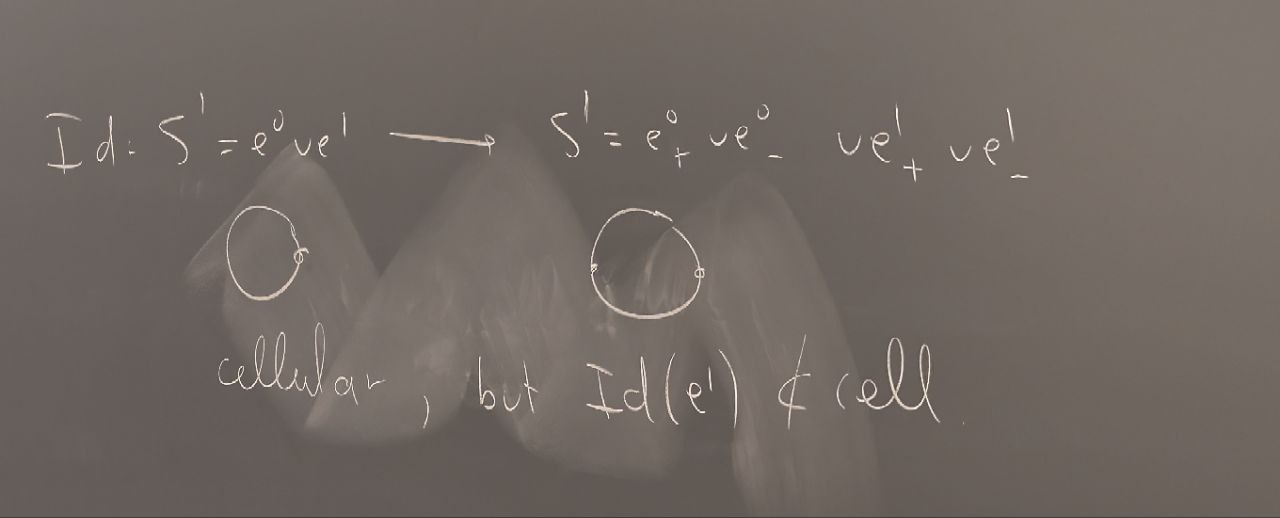 Id: S¹ = e⁰ ∪ e¹ ⟶ S¹ = e⁰₊ ∪ e⁰₋ ∪ e¹₊ ∪ e¹₋
cellular, but Id(e¹) ⊄ cell.